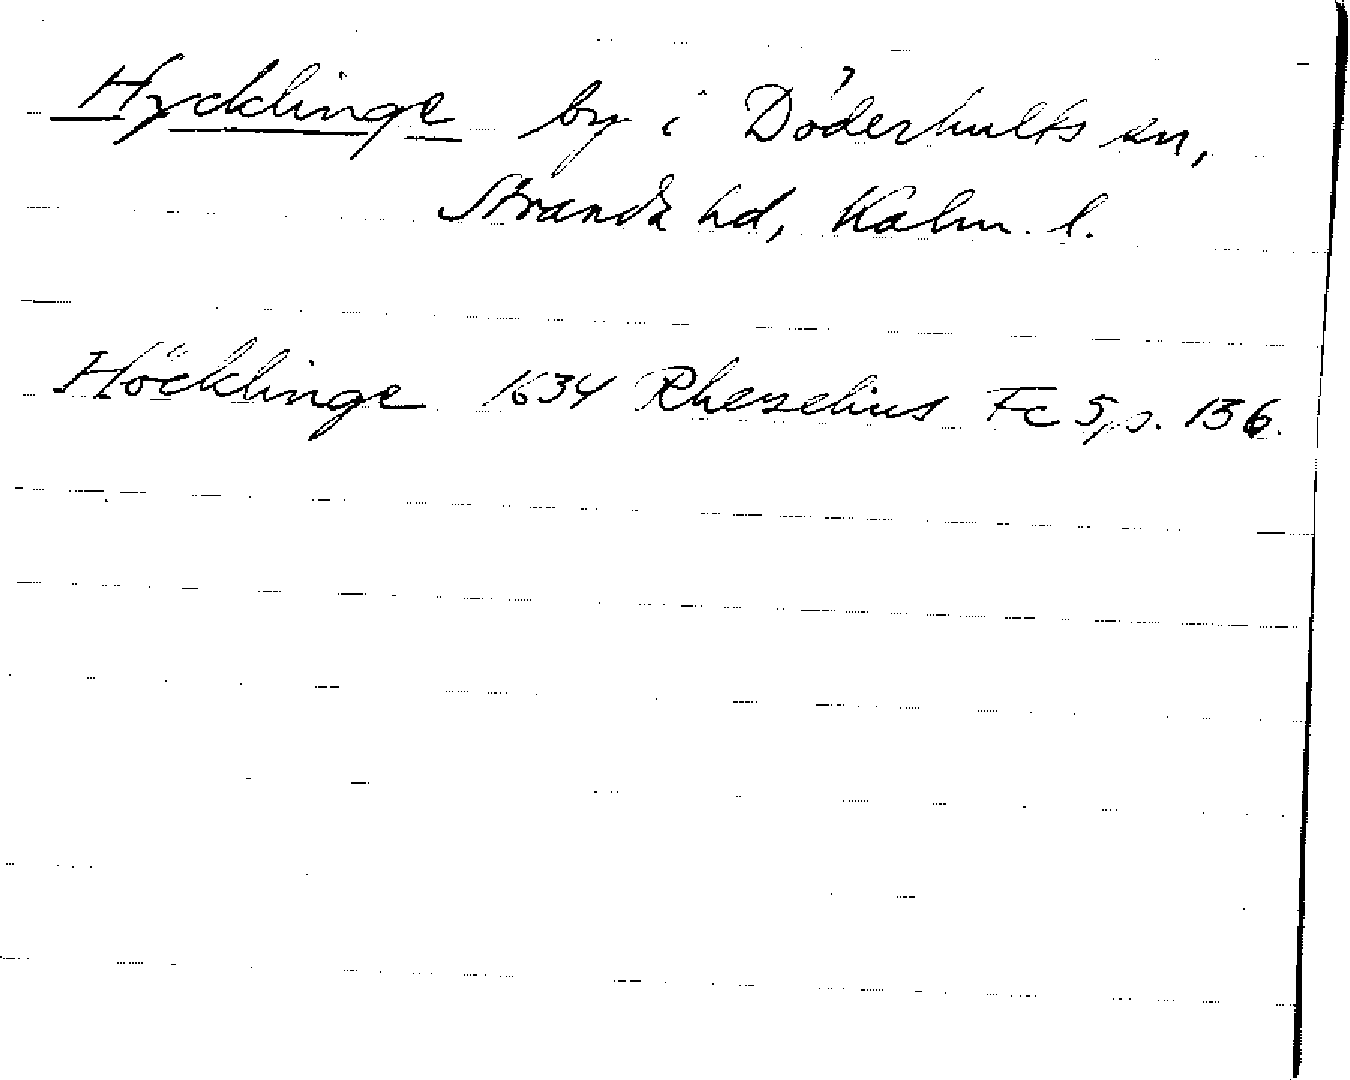 Hycklinge by i Döderhults sn,
Stranda hd, Kalm. l.
Höcklinge 1634 Rhezelius Fc 5, p. 136.